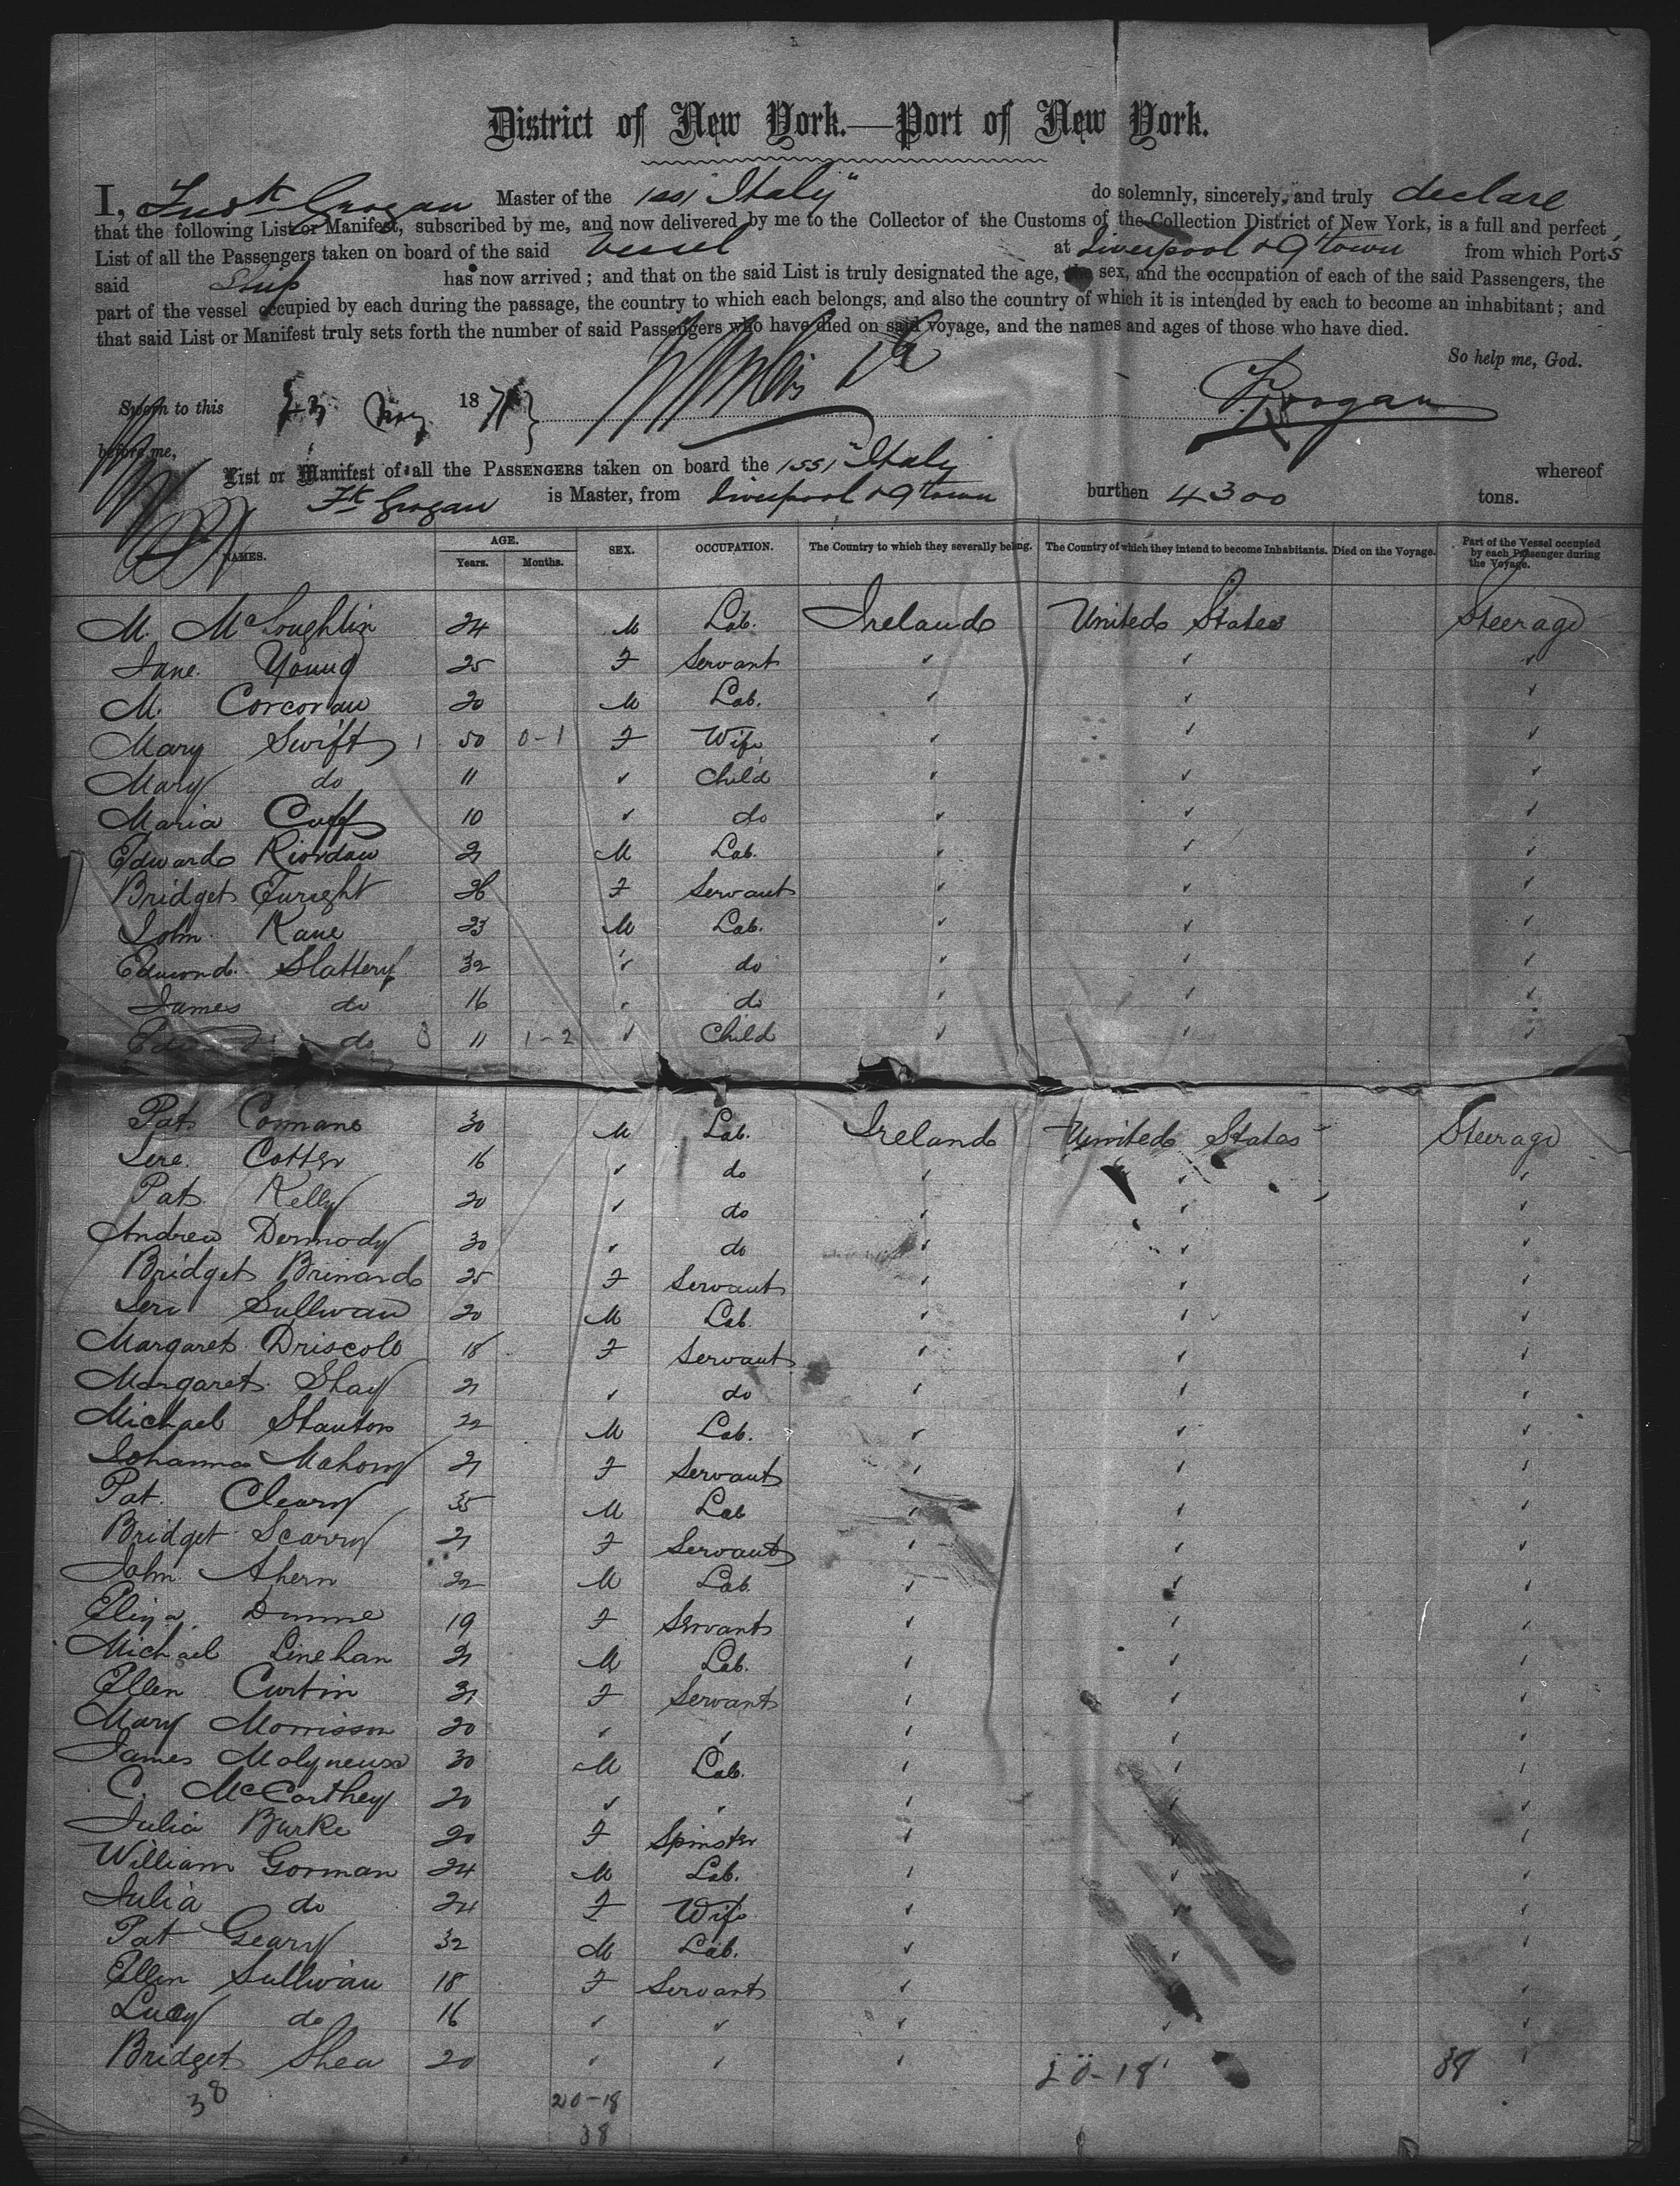 District of New York.—Port of New York.
I, Fredk Grogan Master of the 1551 "Italy" do solemnly, sincerely, and truly declare
that the following List or Manifest, subscribed by me, and now delivered by me to the Collector of the Customs of the Collection District of New York, is a full and perfect
List of all the Passengers taken on board of the said Vessel at Liverpool & Qtown from which Ports
said Ship has now arrived; and that on the said List is truly designated the age, the sex, and the occupation of each of the said Passengers, the
part of the vessel occupied by each during the passage, the country to which each belongs, and also the country of which it is intended by each to become an inhabitant; and
that said List or Manifest truly sets forth the number of said Passengers who have died on said voyage, and the names and ages of those who have died.
So help me, God.
Sworn to this 23 187 FGrogan
before me,
List or Manifest of all the PASSENGERS taken on board the 1551 "Italy whereof
Fk Grogan is Master, from Liverpool & Qtown burthen 4300 tons.
NAMES. AGE. Years. Months. SEX. OCCUPATION. The Country to which they severally belong. The Country of which they intend to become Inhabitants. Died on the Voyage. Part of the Vessel occupied by each Passenger during the Voyage.
M. McLoughlin 24 M Lab. Ireland United States Steerage
Jane Young 25 F Servant
M. Corcoran 20 M Lab.
Mary Swift 1 50 0-1 F Wife
Mary do 11 Child
Maria Cuff 10 do
Edward Riordan 21 M Lab.
Bridget Enright 26 F Servant
John Kane 23 M Lab.
Edmond Slattery 32 do
James do 16 do
do 11 1-2 Child
Pat Connane 30 M Lab. Ireland United States Steerage
Jere. Cotter 16 do
Pat Kelly 20 do
Andrew Dermody 30 do
Bridget Brinard 25 F Servant
Jere Sullivan 20 M Lab
Margaret Driscole 18 F Servant
Margaret Shay 21 do
Michael Stanton 22 M Lab.
Johanna Mahony 21 F Servant
Pat. Cleary 35 M Lab
Bridget Scarry 21 F Servant
John Ahern 22 M Lab.
Eliza Dunne 19 F Servant
Michael Linehan 21 M Lab.
Ellen Curtin 21 F Servant
Mary Morrisson 20
James Molyneux 30 M Lab.
C. McCarthey 20
Julia Burke 20 F Spinster
William Gorman 24 M Lab.
Julia do 24 F Wife
Pat Geary 32 M Lab.
Ellen Sullivan 18 F Servant
Lucy do 16
Bridget Shea 20 20-18 38
38 20-18
38